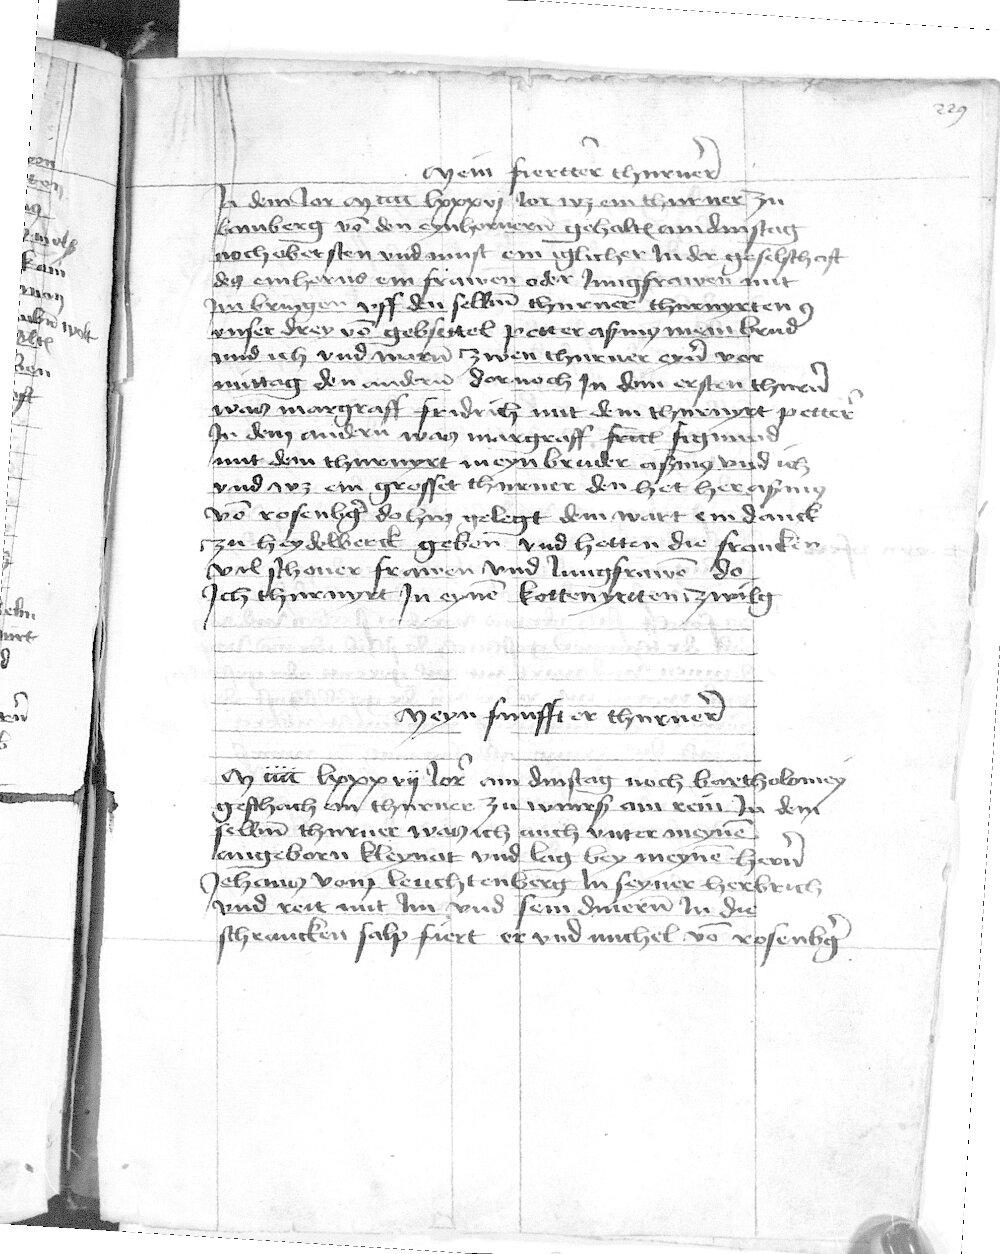 229
Mein fiertter thurner
In dem Jor M iiii lxxxvj Jor wz ein thurner zu
bamberg vo den eynhornern gehalten am dinstag
noch obersten vnd must ein iglicher In der geselschaft
des einhorns ein frawen oder Jungfrawen mit
Im bringen vff den selben thurner thurnyrten
vnser drey vo gebsettel petter asmus mein brud
vnd ich vnd warn zwen thurner eyn vor
mittag den andern dornoch In dem ersten thurn
was margraff fridrich mit dem thurnyrt petter
In dem andern was margraff sigmund
mit dem thurnyrt meyn bruder asmus vnd ich
vnd wz ein grosser thurner den het her asmus
vo rosenbg do hin gelegt dem wart ein danck
zu heydelberck geben vnd hetten die francken
vil schoner frawen vnd Jungfrawe do
Ich thurnyrt In eyne zwilg
Meyn funffter thurner
M iiii lxxxvij Jor am dinstag noch bartholomey
geschach ein thurner zu wurms am rein In dem
selben thurner was ich auch vnter meyne
angeborn kleynat vnd lag bey meyne hern
Johans vom leuchtenberg In seyner herbrich
vnd reit mit Im vnd sein dinern In die
schrancken salp fiert er vnd michel vo rosenbg